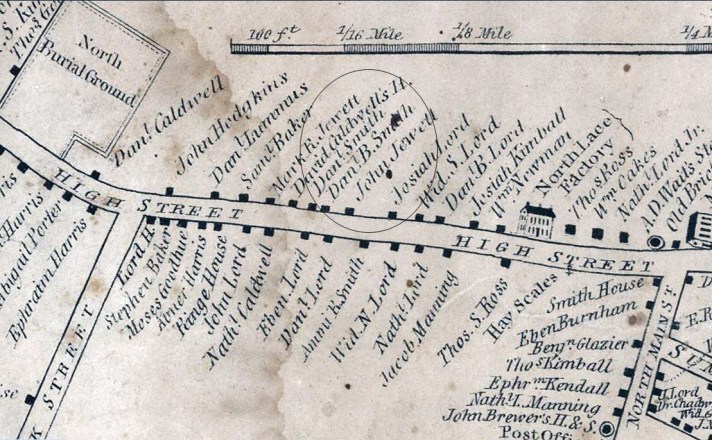 100 ft
1/16 Mile
1/8 Mile
1/4 M
North
Burial Ground
Danl. Caldwell
John Hodgkins
Danl. Lummus
Saml. Baker
Mark R. Jewett
David Caldwell's H.
Danl. Smith
Danl. B. Smith
John Jewett
Josiah Lord
Wid. S. Lord
Danl. B. Lord
Josiah Kimball
Wm. Newman
North Lace
Factory
Thos. Ross
Wm. Oakes
Nathl. Lord Jr.
J.D. Waits
Old Bri
HIGH STREET
HIGH STREET
Harris
Abigail Porter
Ephraim Harris
Lord H.
Stephen Baker
Moses Goodhue
Abner Harris
Fange House
John Lord
Nathl. Caldwell
Eben Lord
Danl. Lord
Ammi B. Smith
Wid. N. Lord
Nathl. Lord
Jacob Manning
Thos. S. Ross
Hay Scales
Smith House
Eben Burnham
Benjn. Glazier
Thos. Kimball
Ephrm. Kendall
Nathl. L. Manning
John Brewer's H. & S.
Post Offi
NORTH MAIN ST
K STREET
E.R
J. Lord